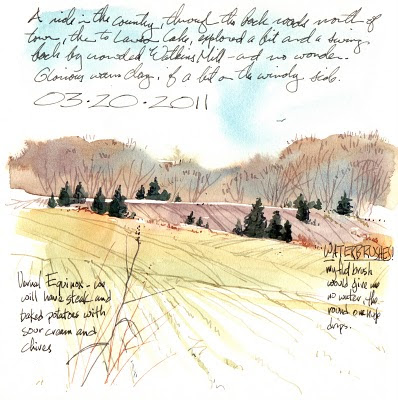 A ride in the country, through the back roads north of
town, then to Lawson Lake, explored a bit and a swing
back by crowded Watkins Mill - and no wonder.
Glorious warm day, if a bit on the windy side.
03.20.2011
Vernal Equinox - we
will have steak and
baked potatoes with
sour cream and
chives
WATERBRUSHES!
my flat brush
would give me
no water, the
round one
drips.